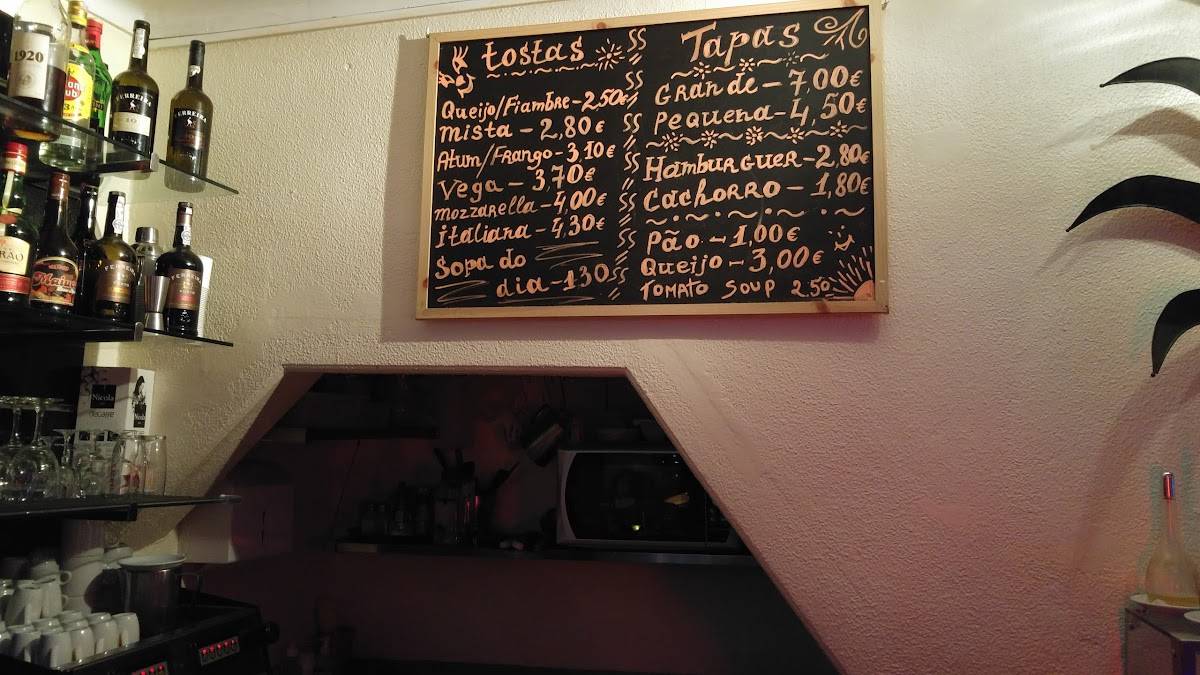 tostas
Queijo/Fiambre - 2,50€
mista - 2,80€
Atum/Frango - 3,10€
Vega - 3,70€
mozzarella - 4,00€
italiana - 4,30€
Sopa do
dia - 1.30
Tapas
Grande - 7,00€
Pequena - 4,50€
Hamburguer - 2,80€
Cachorro - 1,80€
Pão - 1,00€
Queijo - 3,00€
TOMATO SOUP 2.50
1920
FERREIRA
Nicola
Nicola